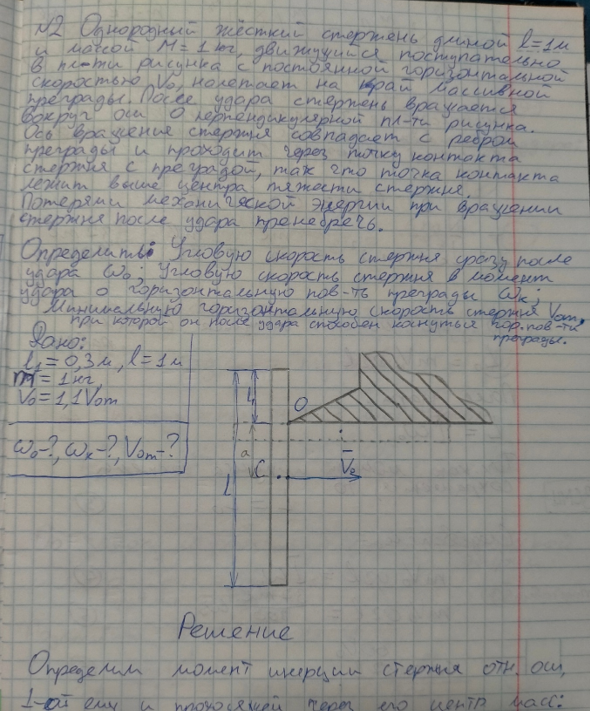 N2 Однородный жёсткий стержень длиной l=1м
и массой M=1кг, движущийся поступательно
в пл-ти рисунка с постоянной горизонтальной
скоростью V₀, налетает на край массивной
преграды. После удара стержень вращается
вокруг оси O перпендикулярной пл-ти рисунка.
Ось вращения стержня совпадает с ребром
преграды и проходит через точку контакта
стержня с преградой, так что точка контакта
лежит выше центра тяжести стержня.
Потерями механической энергии при вращении
стержня после удара пренебречь.
Определить: Угловую скорость стержня сразу после
удара ω₀; Угловую скорость стержня в момент
удара о горизонтальную пов-ть преграды ωк;
Минимальную горизонтальную скорость стержня V₀m,
при которой он после удара способен коснуться гор. пов-ти
преграды.
Дано:
l₁=0,3м, l=1м
m=1кг,
V₀=1,1V₀m
ω₀-?, ωк-?, V₀m-?
l₁
O
a
C
V₀
l
Решение
Определим момент инерции стержня отн. оси,
⊥-ой ему и проходящей через его центр масс: